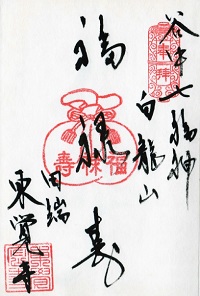 谷中七福神
奉拝
白龍山
福禄寿
福禄寿
田端
東覺寺